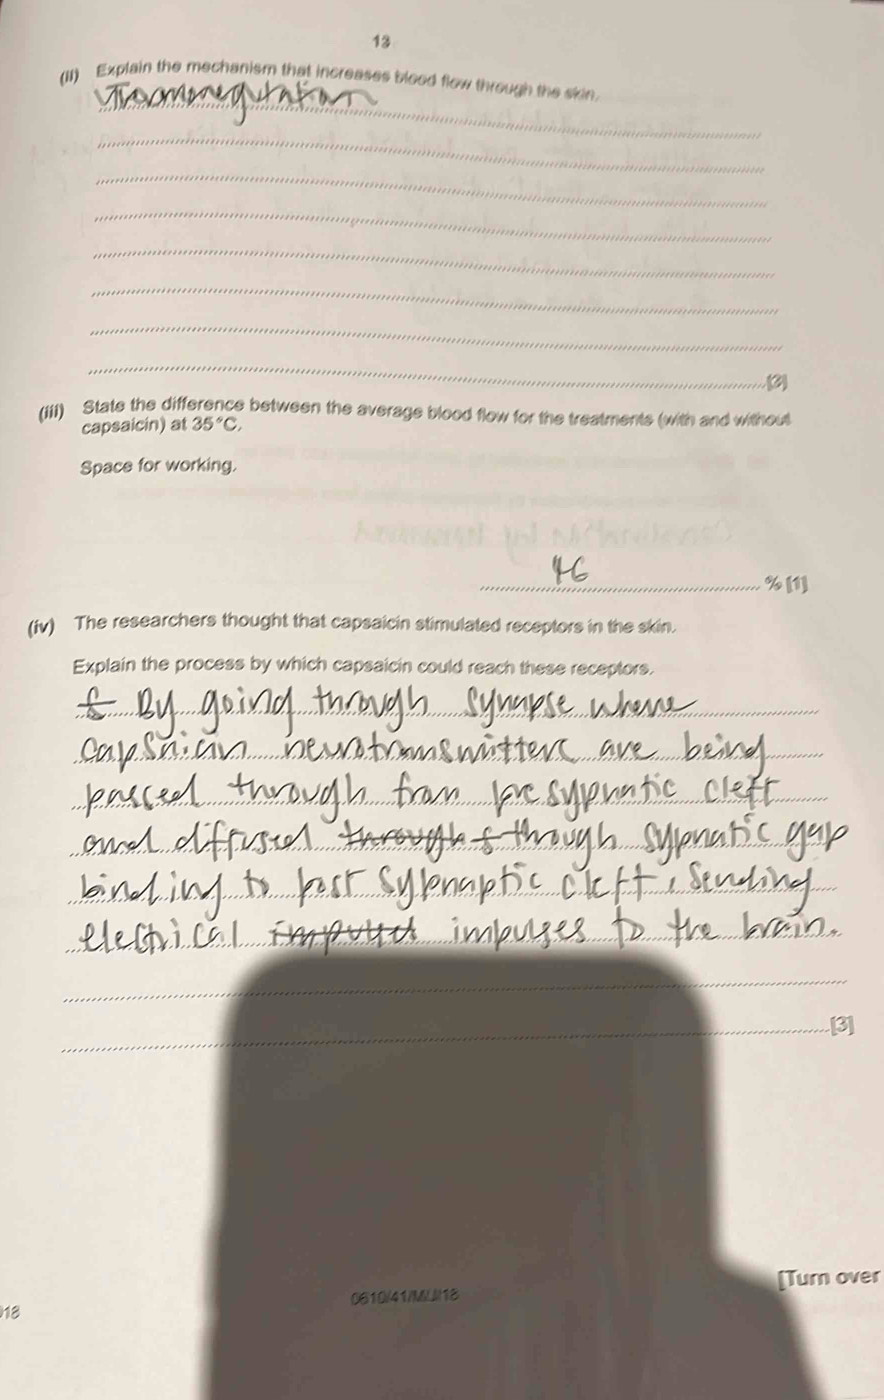 13
(ii) Explain the mechanism that increases blood flow through the skin.
[3]
(iii) State the difference between the average blood flow for the treatments (with and without
capsaicin) at 35°C.
Space for working.
46 % [1]
(iv) The researchers thought that capsaicin stimulated receptors in the skin.
Explain the process by which capsaicin could reach these receptors.
By going through synapse where
capsaicin neurotransmitters are being
passed through from presypnatic cleft
and diffused through through sypnatic gap
binding to post sypnaptic cleft, sending
electrical imputed impulses to the brain.
[3]
[Turn over
0610/41/M/J/18
18